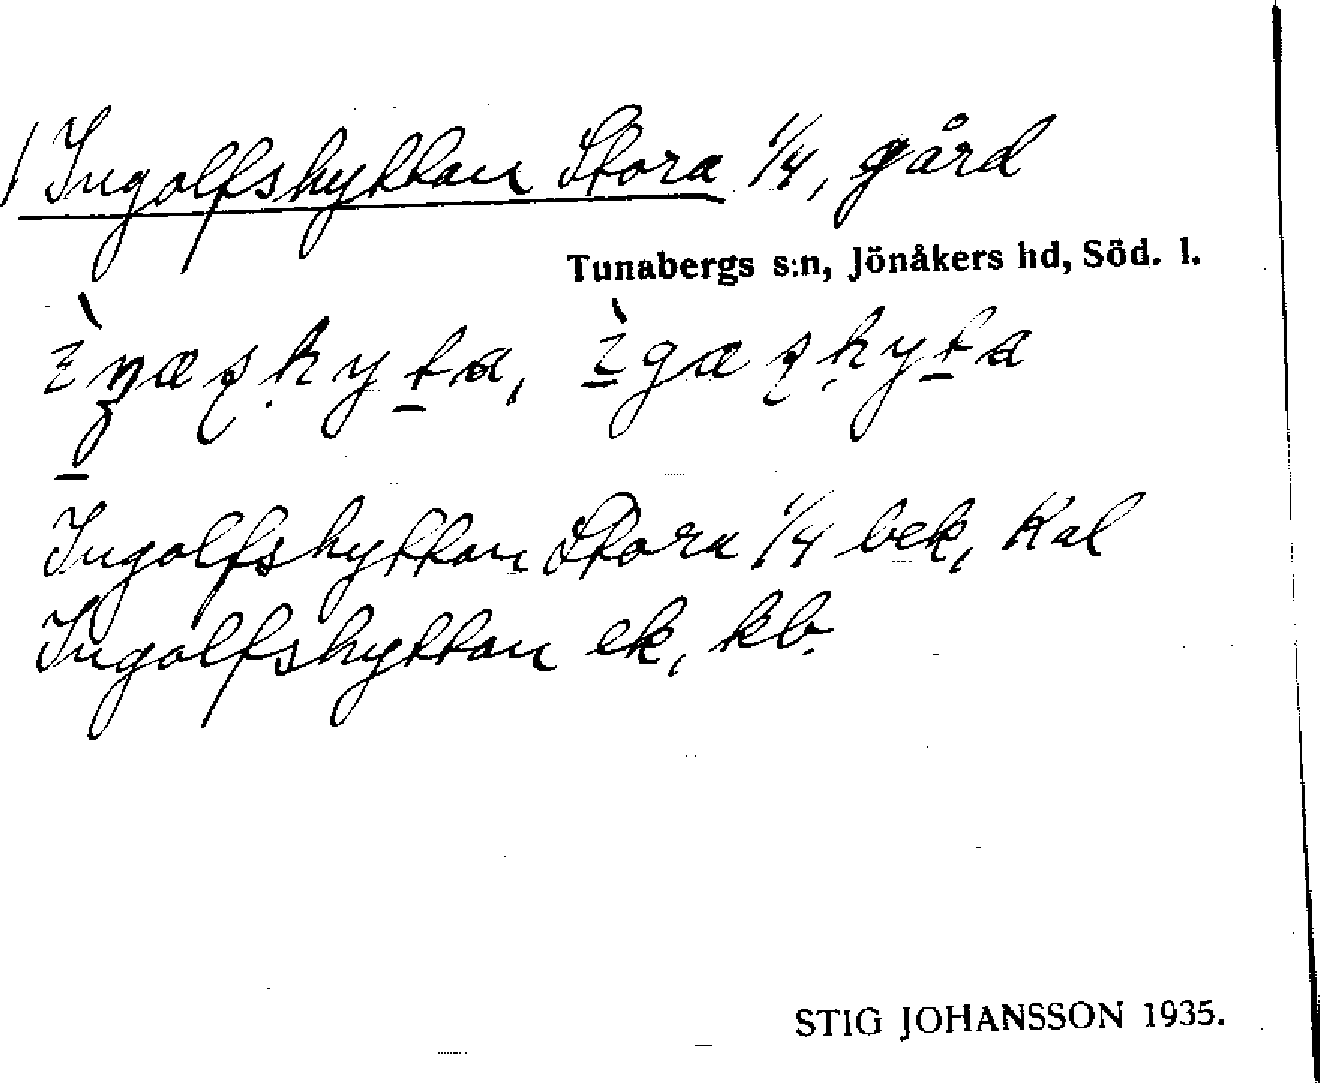 / Ingolfshyttan Stora 1/4, gård
Tunabergs s:n, Jönåkers hd, Söd. l.
Ingolfshyttan Stora 1/4 bek, Kal
Ingolfshyttan ek, kb.
STIG JOHANSSON 1935.